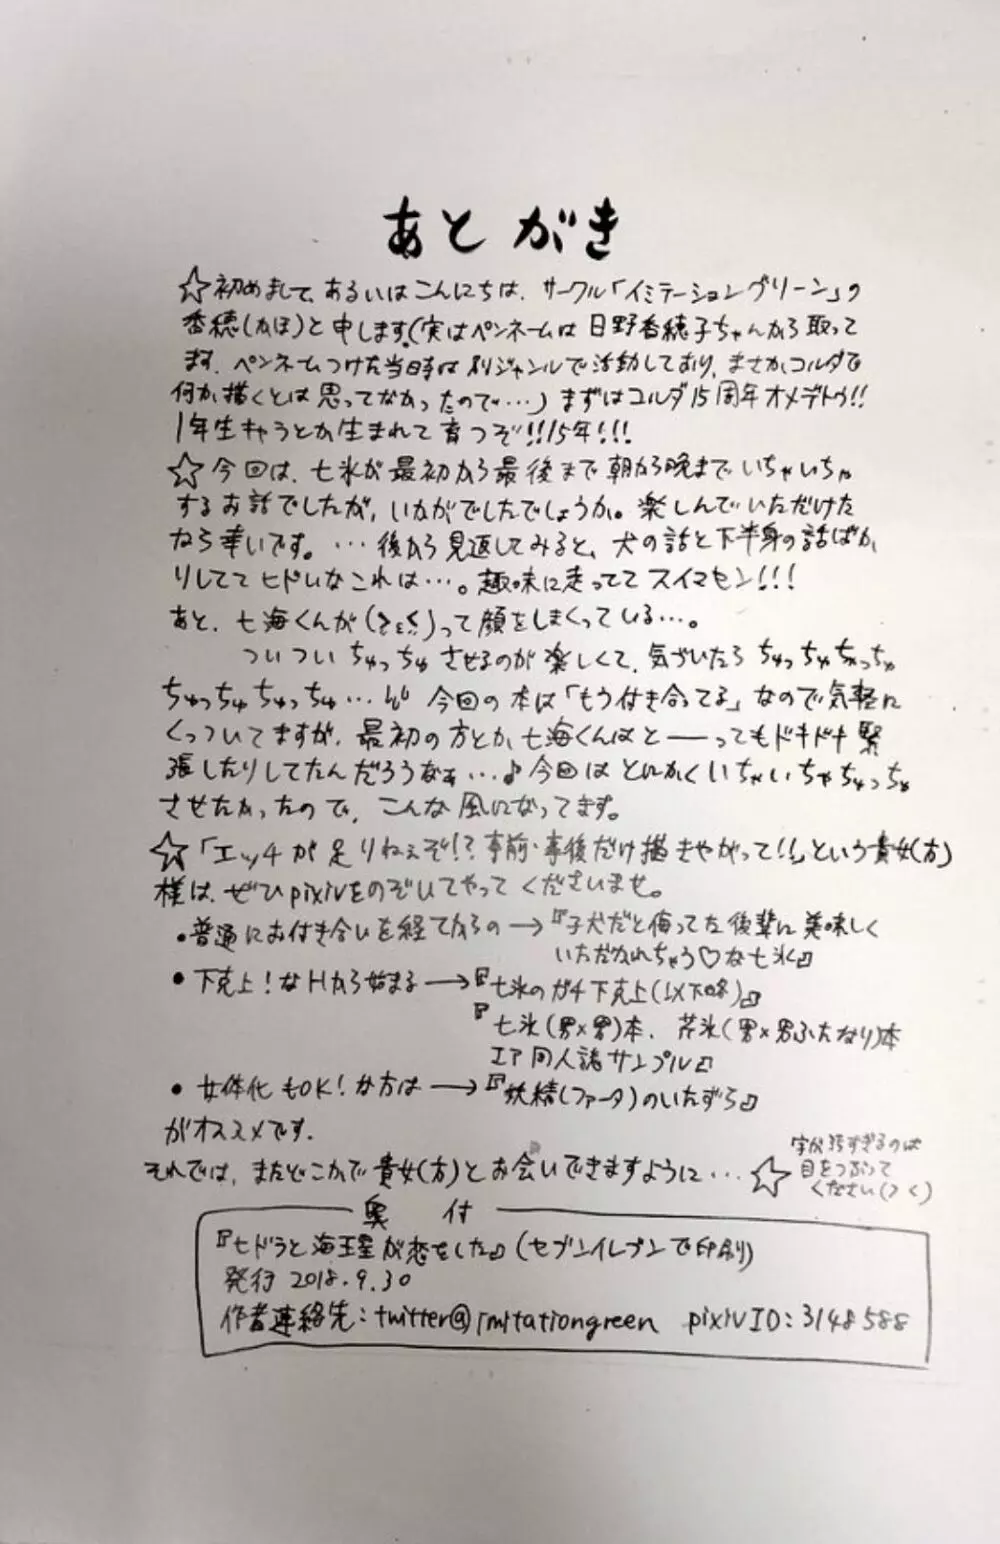 あとがき
☆初めまして、あるいはこんにちは、サークル「イミテーショングリーン」の
香穂(かほ)と申します。(実はペンネームは日野香穂子ちゃんから取って
ます。ペンネームつけた当時は別ジャンルで活動しており、まさかコルダで
何か描くとは思ってなかったので…)まずはコルダ15周年オメデトウ!!
1年生キャラとか生まれて育つぞ!!15年!!!
☆今回は、七氷が最初から最後まで朝から晩までいちゃいちゃ
するお話でしたが、いかがでしたでしょうか。楽しんでいただけた
なら幸いです。…後から見返してみると、犬の話と下半身の話ばか
りしててヒドいなこれは…。趣味に走っててスイマセン!!!
あと、七海くんが って顔をしまくっている…。
ついついちゅっちゅさせるのが楽しくて、気づいたらちゅっちゅちゅっちゅ
ちゅっちゅちゅっちゅ… 今回の本は「もう付き合ってる」なので気軽に
くっついてますが、最初の方とか、七海くんはと――ってもドキドキ緊
張したりしてたんだろうなぁ…♪今回はとにかくいちゃいちゃちゅっちゅ
させたかったので、こんな風になってます。
☆「エッチが足りねぇぞ!?事前・事後だけ描きやがって!!」という貴女(方)
様は、ぜひpixivをのぞいてやってくださいませ。
・普通にお付き合いを経てからの→『子犬だと侮ってた後輩に美味しく
いただかれちゃう♡な七氷』
・下克上!なHから始まる→『七氷のガチ下克上(以下略)』
『七氷(男×男)本、芹氷(男×男ふたなり)本
エア同人誌サンプル』
・女体化もOK!な方は→『妖精(ファータ)のいたずら』
がオススメです。
それでは、またどこかで貴女(方)とお会いできますように…☆
字が汚すぎるのは
目をつぶって
ください(>く)
奥付
『七ドラと海王星が恋をした』(セブンイレブンで印刷)
発行 2018.9.30
作者連絡先:twitter@imitationgreen pixivID:3148588